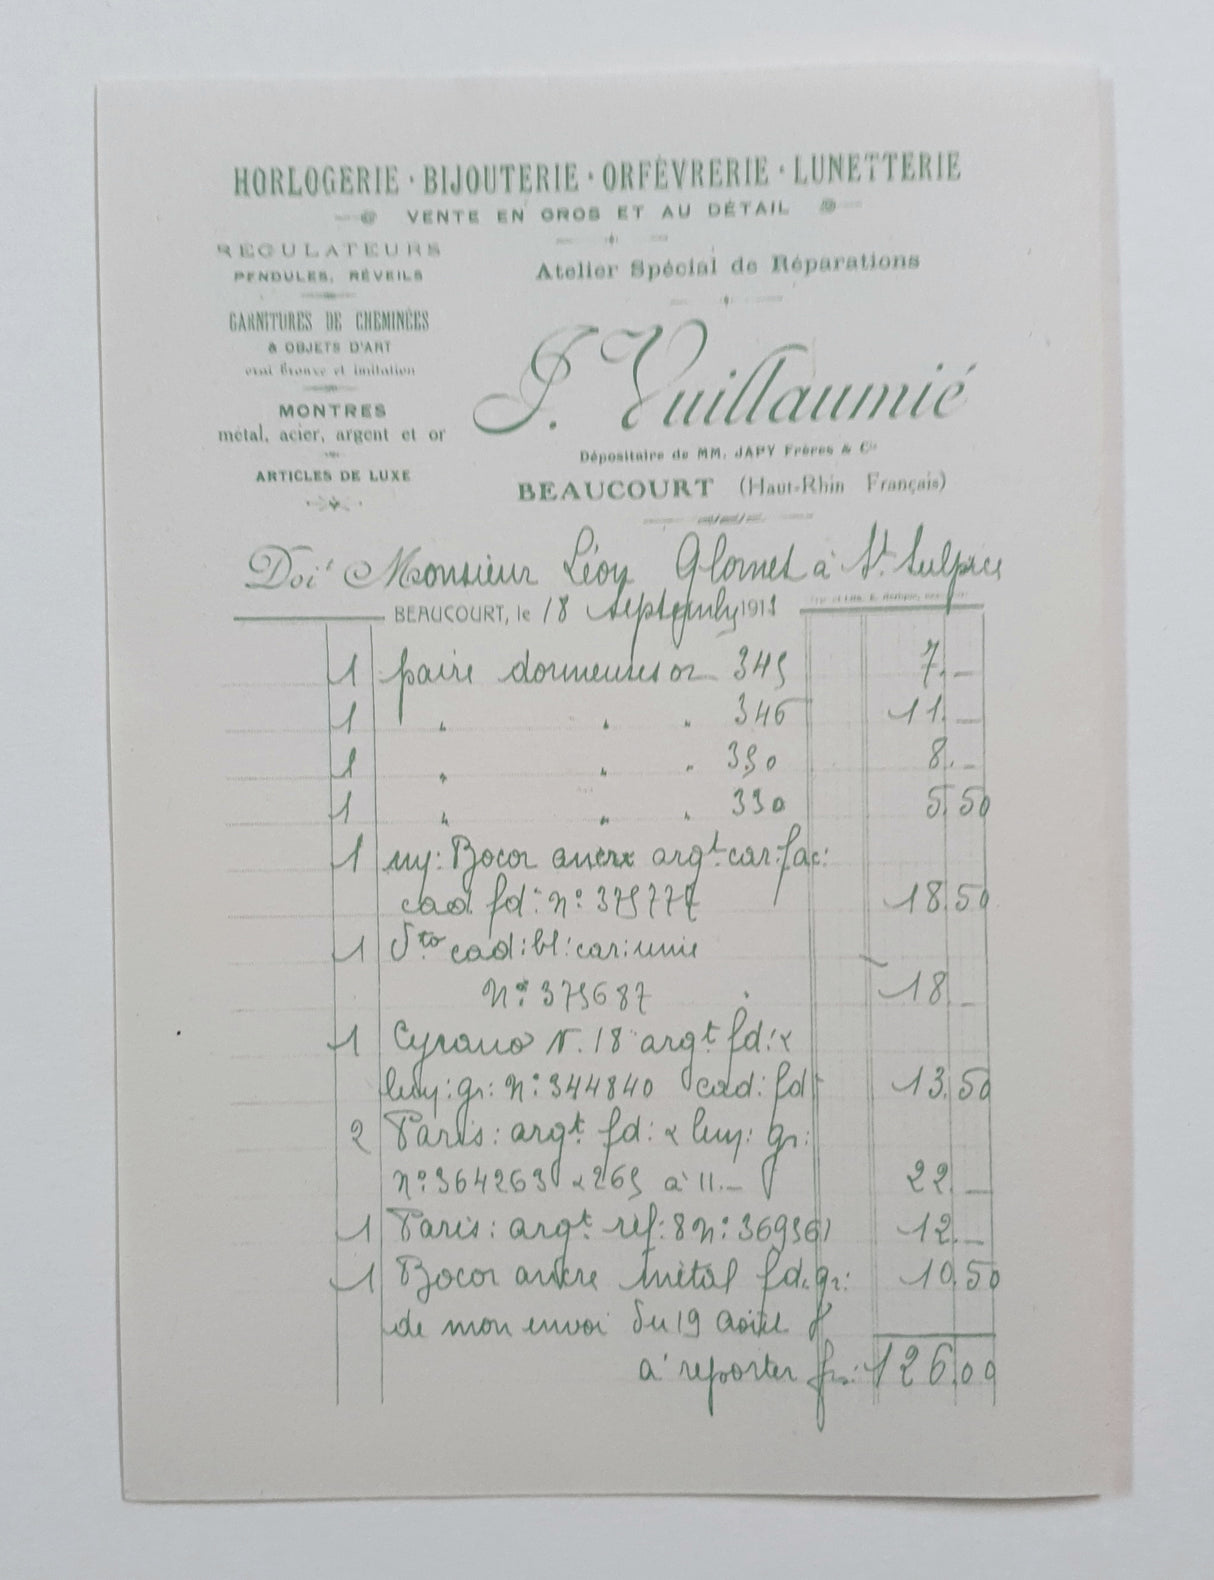 HORLOGERIE · BIJOUTERIE · ORFÈVRERIE · LUNETTERIE
VENTE EN GROS ET AU DÉTAIL
RÉGULATEURS
PENDULES, RÉVEILS
GARNITURES DE CHEMINÉES
& OBJETS D'ART
vrai Bronze et imitation
MONTRES
métal, acier, argent et or
ARTICLES DE LUXE
Atelier Spécial de Réparations
J. Vuillaumié
Dépositaire de MM. JAPY Frères & Cie
BEAUCOURT (Haut-Rhin Français)
Doit Monsieur Léon à St. Sulpice
BEAUCOURT, le 18 1911
1 paire dormeuses or 345 7.—
1 " " " 346 11.—
1 " " " 350 8.—
1 " " " 330 5.50
1 Bocor ancre argt. car: fac:
cad fd: n: 18.50
1 Dto cad: bl: car: unie
N: 375687 18.—
1 Cyrano N. 18 argt. fd: &
luy: gr: N: 344840 cad: fd: 13.50
2 Paris: argt. fd: & luy: gr:
No: 364263 & 265 à 11.— 22.—
1 Paris: argt. réf: 8 N: 369361 12.—
1 Bocor ancre métal fd. gr: 10.50
de mon envoi du 19 août
à reporter frs: 126.00